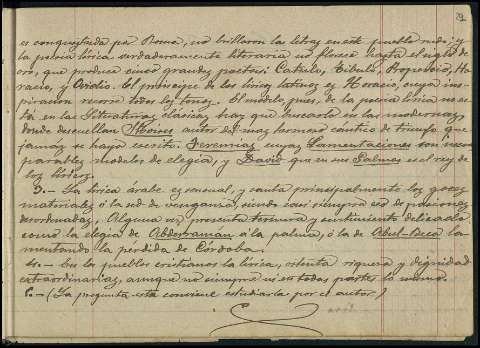 es conquistada por Roma, no brillaron las letras en este pueblo rudo; y
la poesía lírica verdaderamente literaria no florece hasta el siglo de
oro, que produce cinco grandes poetas: Catulo, Tibulo, Propercio, Ho-
racio, y Ovidio. El príncipe de los líricos latinos es Horacio, cuya ins-
piración recorre todos los tonos. El modelo pues, de la poesía lírica no es-
tá en las literaturas clásicas, hay que buscarlo en las modernas,
donde descuellan Moises autor del mas hermoso cántico de triunfo que
jamás se haya escrito. Jeremías cuyas Lamentaciones son incom-
parables modelos de elegía, y David que en sus Salmos es el rey de
los líricos.
3.- La lírica árabe es sensual, y canta principalmente los goces
materiales ó la sed de venganza, siendo casi siempre eco de pasiones
desordenadas. Alguna vez presenta ternura y sentimiento delicado
como la elegía de Abderramán á la palma, ó la de Abul-Beca la-
mentando la pérdida de Córdoba.
4.- En los pueblos cristianos la lírica, ostenta riqueza y dignidad
extraordinarias, aunque no siempre ni en todas partes lo mismo.
5.- (La pregunta esta conviene estudiarla por el autor.)